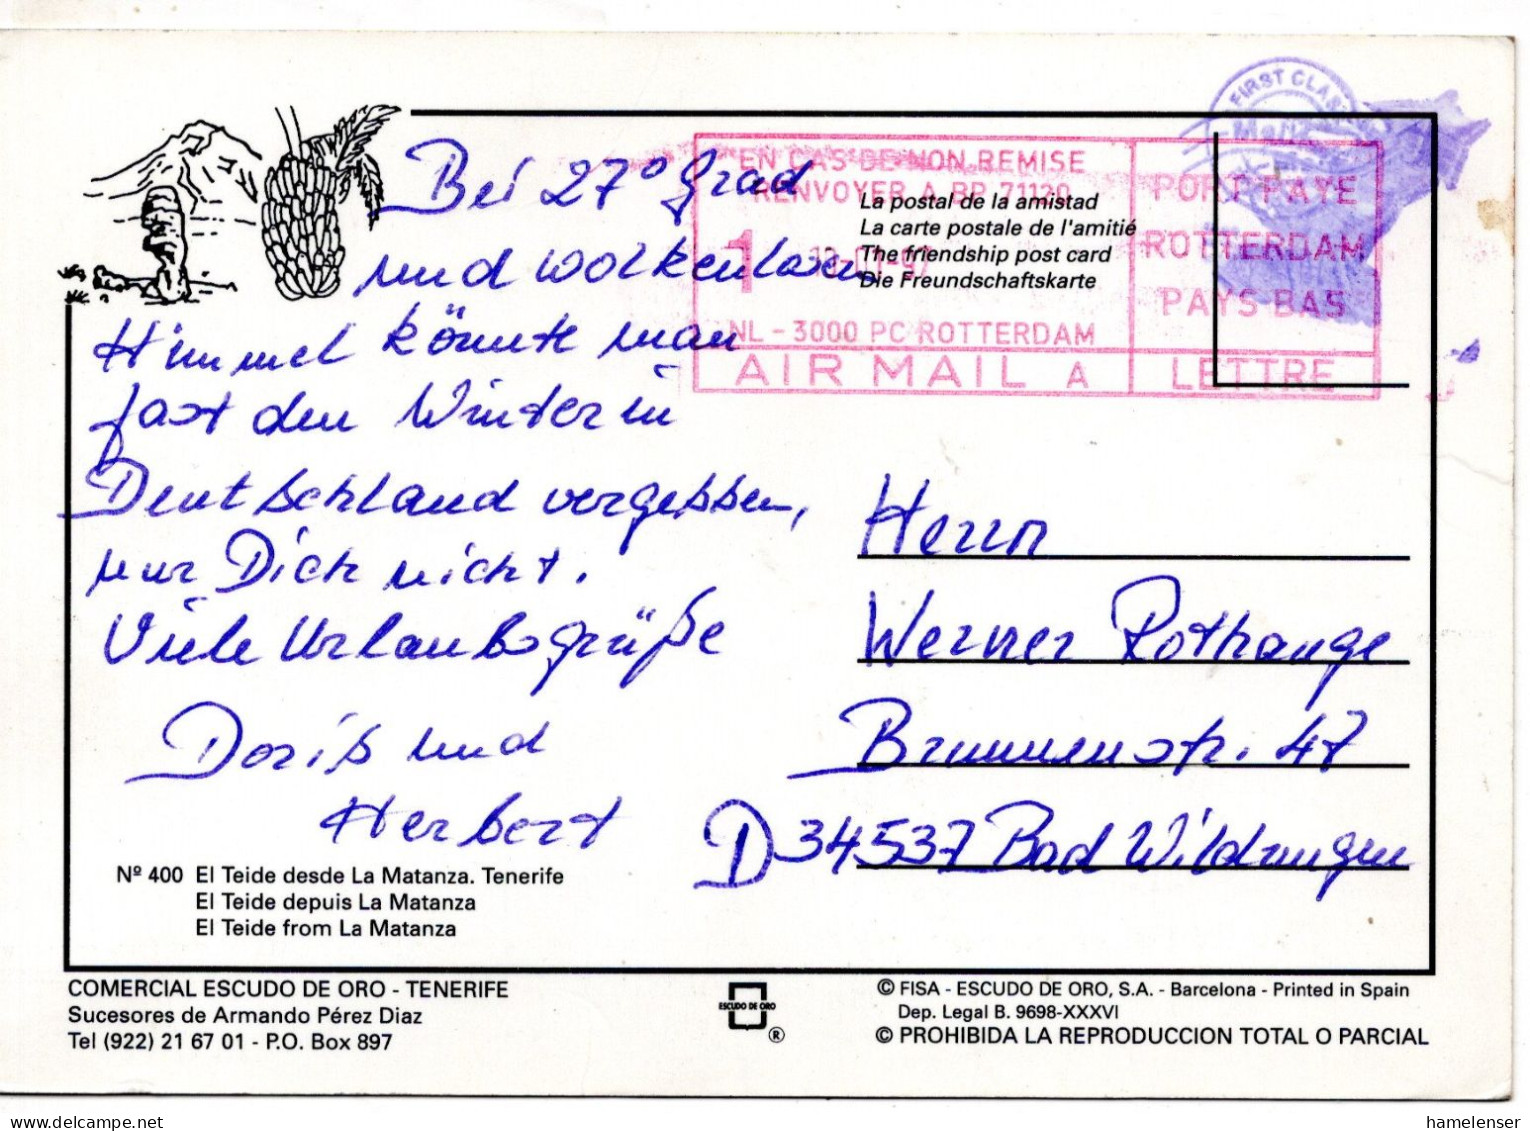 Bei 27° Grad
und wolkenlosen
Himmel könnte man
fast den Winter in
Deutschland vergessen,
nur Dich nicht.
Viele Urlaubsgrüße
Doris und
Herbert
Nº 400 El Teide desde La Matanza. Tenerife
El Teide depuis La Matanza
El Teide from La Matanza
FIRST CLASS
EN CAS DE NON REMISE
RENVOYER A BP 71120
1
NL - 3000 PC ROTTERDAM
AIR MAIL A
PORT PAYE
ROTTERDAM
PAYS BAS
LETTRE
La postal de la amistad
La carte postale de l'amitié
The friendship post card
Die Freundschaftskarte
Herrn
Werner Rothauge
Brunnenstr. 47
D 34537 Bad Wildungen
COMERCIAL ESCUDO DE ORO - TENERIFE
Sucesores de Armando Pérez Diaz
Tel (922) 21 67 01 - P.O. Box 897
ESCUDO DE ORO
®
© FISA - ESCUDO DE ORO, S.A. - Barcelona - Printed in Spain
Dep. Legal B. 9698-XXXVI
© PROHIBIDA LA REPRODUCCION TOTAL O PARCIAL
hamelenser